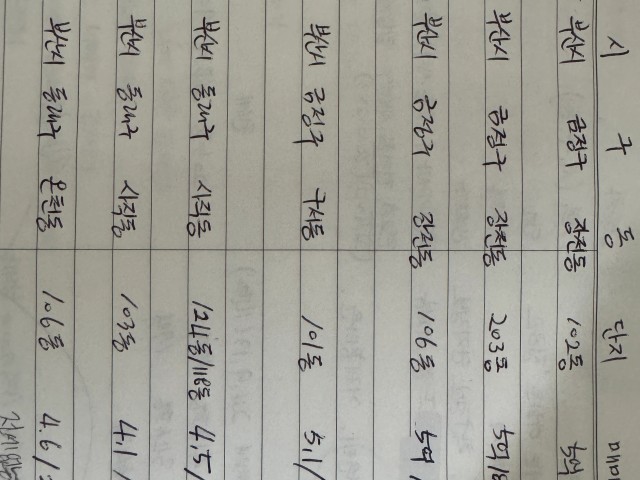 시 구 동 단지
부산시 금정구 장전동 102동 5억
부산시 금정구 장전동 203동 5억/
부산시 금정구 장전동 106동 5억/
부산시 금정구 구서동 101동 5.1/
부산시 동래구 사직동 124동/118동 4.5/
부산시 동래구 사직동 103동 4.1/
부산시 동래구 온천동 106동 4.6/